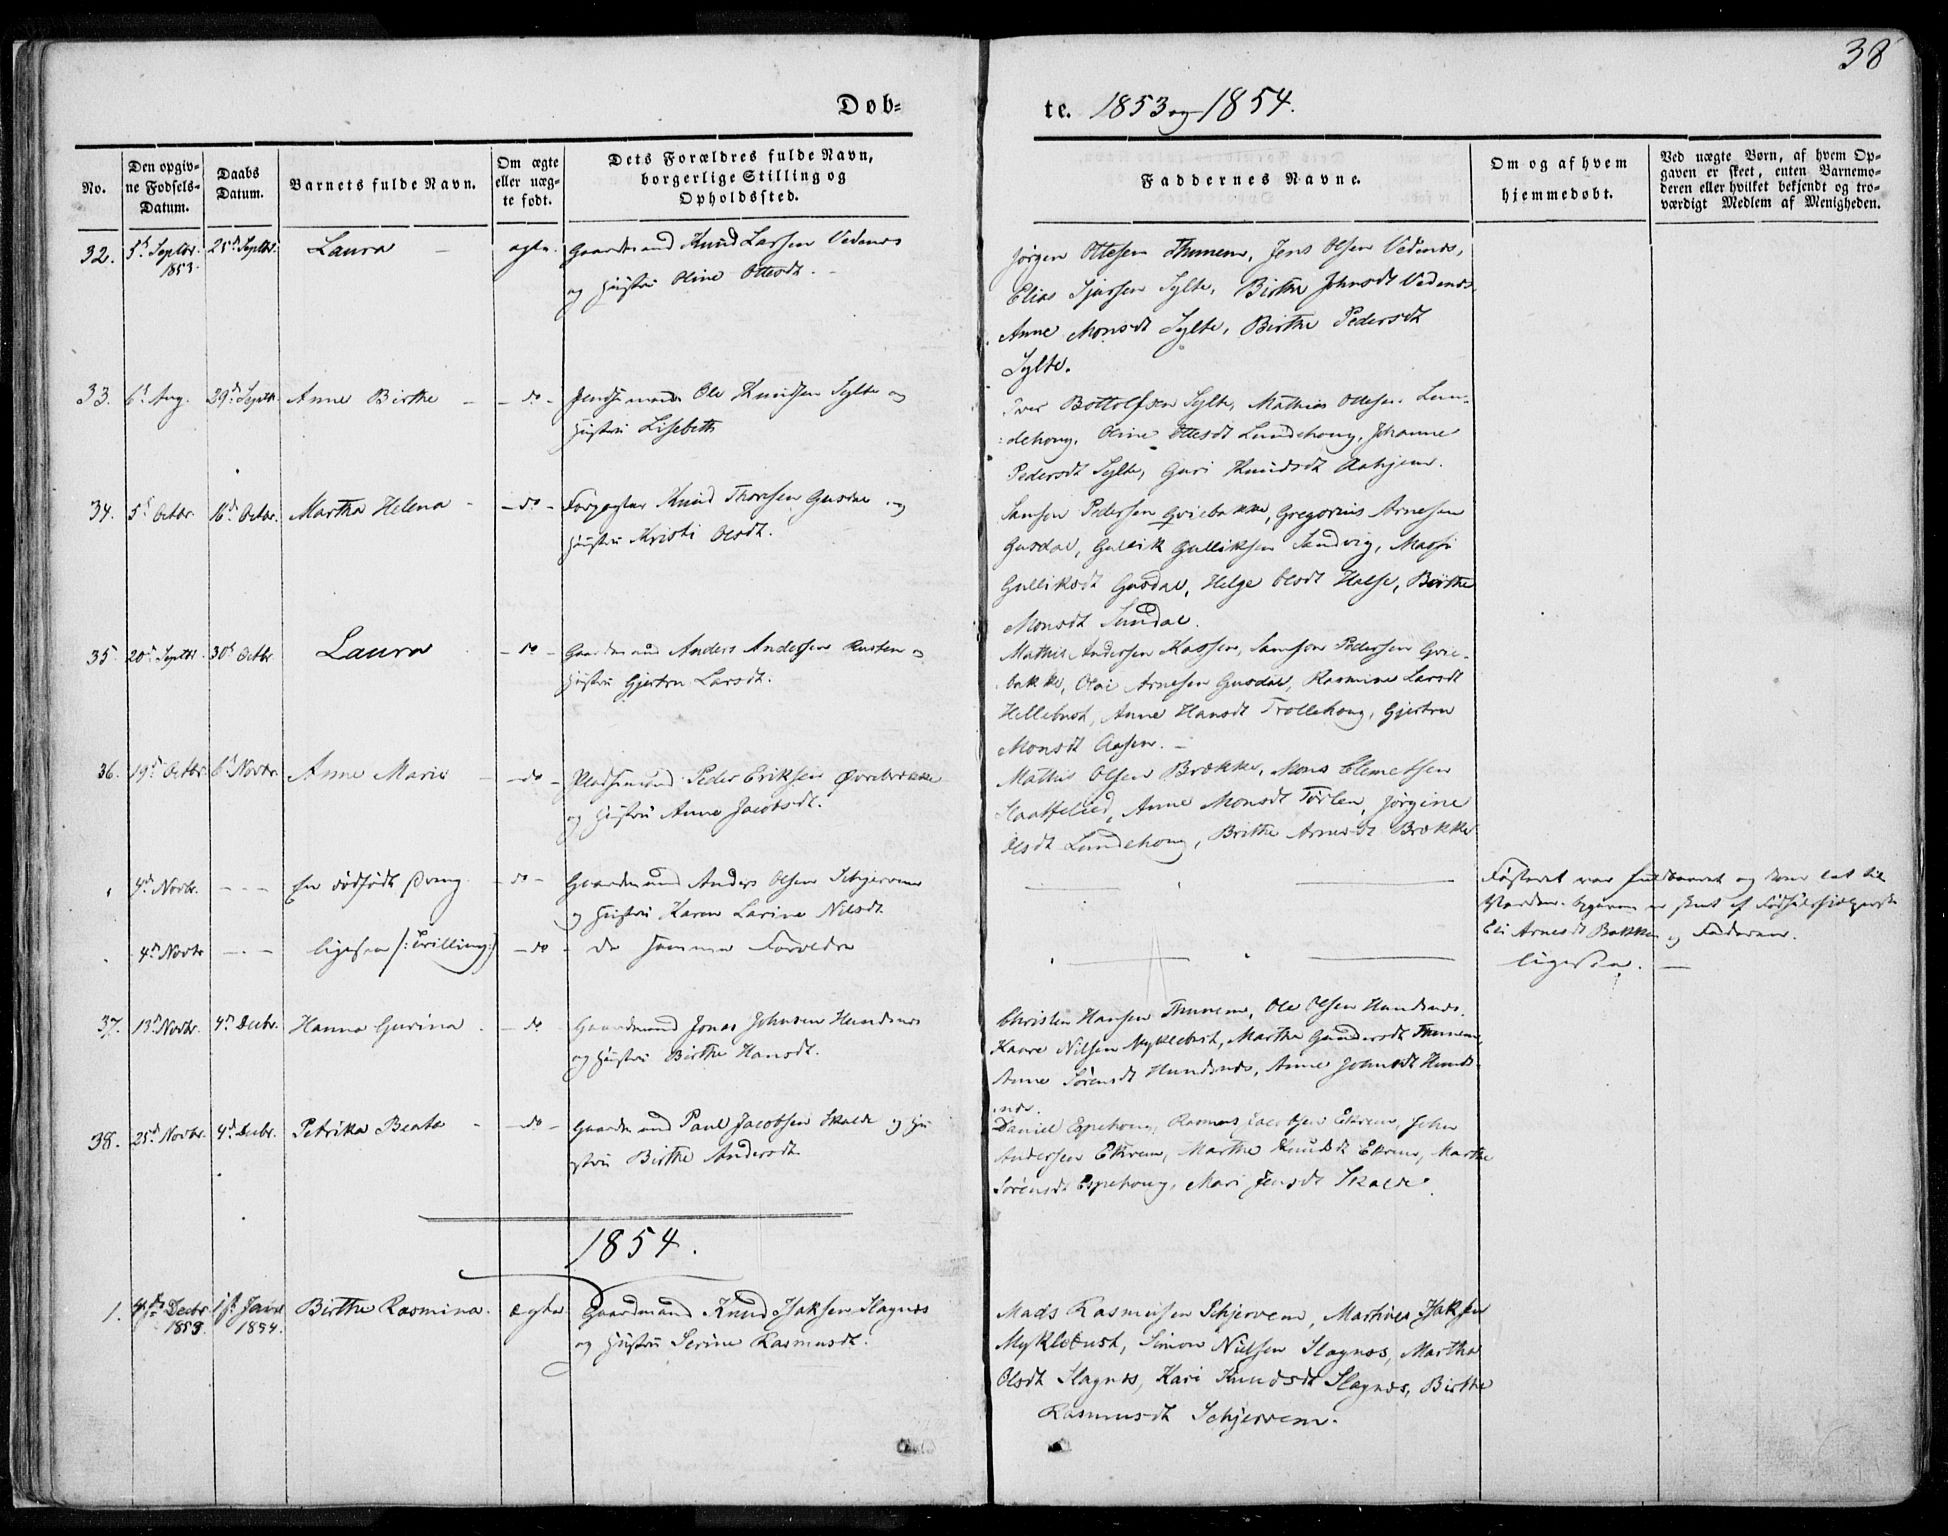 38
Døb-
te. 1853 og 1854.
No.
Den opgiv-
ne Fødsels-
Datum.
Daabs
Datum.
Barnets fulde Navn.
Om ægte
eller uæg-
te født.
Dets Forældres fulde Navn,
borgerlige Stilling og
Opholdssted.
Faddernes Navne.
Om og af hvem
hjemmedøbt.
Ved uægte Børn, af hvem Op-
gaven er skeet, enten Barnemo-
deren eller hvilket bekjendt og tro-
værdigt Medlem af Menigheden.
32. 5te Septbr. 1853. 25de Septbr. Laura ægte Gaardmand Knud Larsen Vedenes
og Hustru Oline Ottesdt.
Jørgen Ottesen Thunem, Jens Olsen Vedenes,
Elias Sylte, Birthe Johnsdt Vedenes
Anne Monsdt Sylte, Birthe Pedersdt
Sylte.
33. 6te Aug. 29de Septbr. Anne Birthe do Ole Knudsen Sylte og
Hustru Lisebeth
Iver Bottolfsen Sylte, Mathias Ottesen Lun-
dehoug, Oline Ottesdt Lundehoug, Johanne
Pedersdt Sylte, Guri Knudsdt Aahjem.
34. 5te Octbr. 16de Octbr. Martha Helena do Forpagter Knud Thoresen Gusdal og
Hustru Kristi Olsdt.
Samson Pedersen Qviebakke, Gregorius Arnesen
Gusdal, Gullik Gulliksen Sandvig, Massi
Gulliksdt Gusdal, Helge Olsdt Halse, Birthe
Monsdt Sundal.
35. 20de Septbr. 30te Octbr Laura do Gaardmand Anders Andersen Rusten og
Hustru Gjertru Larsdt.
Mathis Andersen Aassen, Samson Pedersen Qvie-
bakke, Oloi Arnesen Gusdal, Rasmine Larsdt
Hellebust, Anne Hansdt Trollehoug, Gjertru
Monsdt Aasen.
36. 19de Octbr. 6te Novbr. Anne Marie do Pladsmand Peder Eriksen Øvrebrække
og Hustru Anne Jacobsdt.
Mathis Olsen Brække, Mons Clemetsen
Anne Monsdt Jørgine
Olsdt Lundehoug, Brithe Arnesdt Brække
4de Novbr. En dødfødt Dreng do Gaardmand Anders Olsen Schjervem
og Hustru Karen Larine Nilsdt.
Fosteret var fuldbaaret og kom lat til
Verden. Opgaven er skeet af
Eli Arnesdt Bakken og Faderen.
4de Novbr ligesaa (: Tvilling:) do de samme Forældre
ligesaa.
37. 13de Novbr. 4de Decbr. Hanna Gurina do Gaardmand Jonas Johnsen Hundsnes
og Hustru Birthe Hansdt.
Christen Hansen Thunem, Ole Olsen Hundsnes.
Kaare Nilsen Myklebust, Marthe Gundersdt Thunem,
Anne Sørensdt Hundsnes, Anne Johnsdt Hunds-
nes.
38. 25de Novbr. 4de Decbr. Petrika Beate do Gaardmand Paul Jacobsen Skolde og Hu
stru Birthe Andersdt.
Daniel Espehoug, Rasmus Jacobsen Ekrem, John
Andersen Ekrem, Marthe Knudsdt Ekrem, Marthe
Sørensdt Espehoug, Mari Jensdt Skolde.
1854.
1. 4de Decbr 1853. 1ste Januar 1854. Birthe Rasmina. ægte Gaardmand Knud Isaksen Slagnes
og Hustru Serine Rasmusdt.
Mads Rasmussen Schjervem, Martinus Isaksen
Myklebust, Simon Nielsen Slagnes, Martha
Olsdt Slagnes, Kari Knudsdt Slagnes, Birthe
Rasmusdt Schjervem.